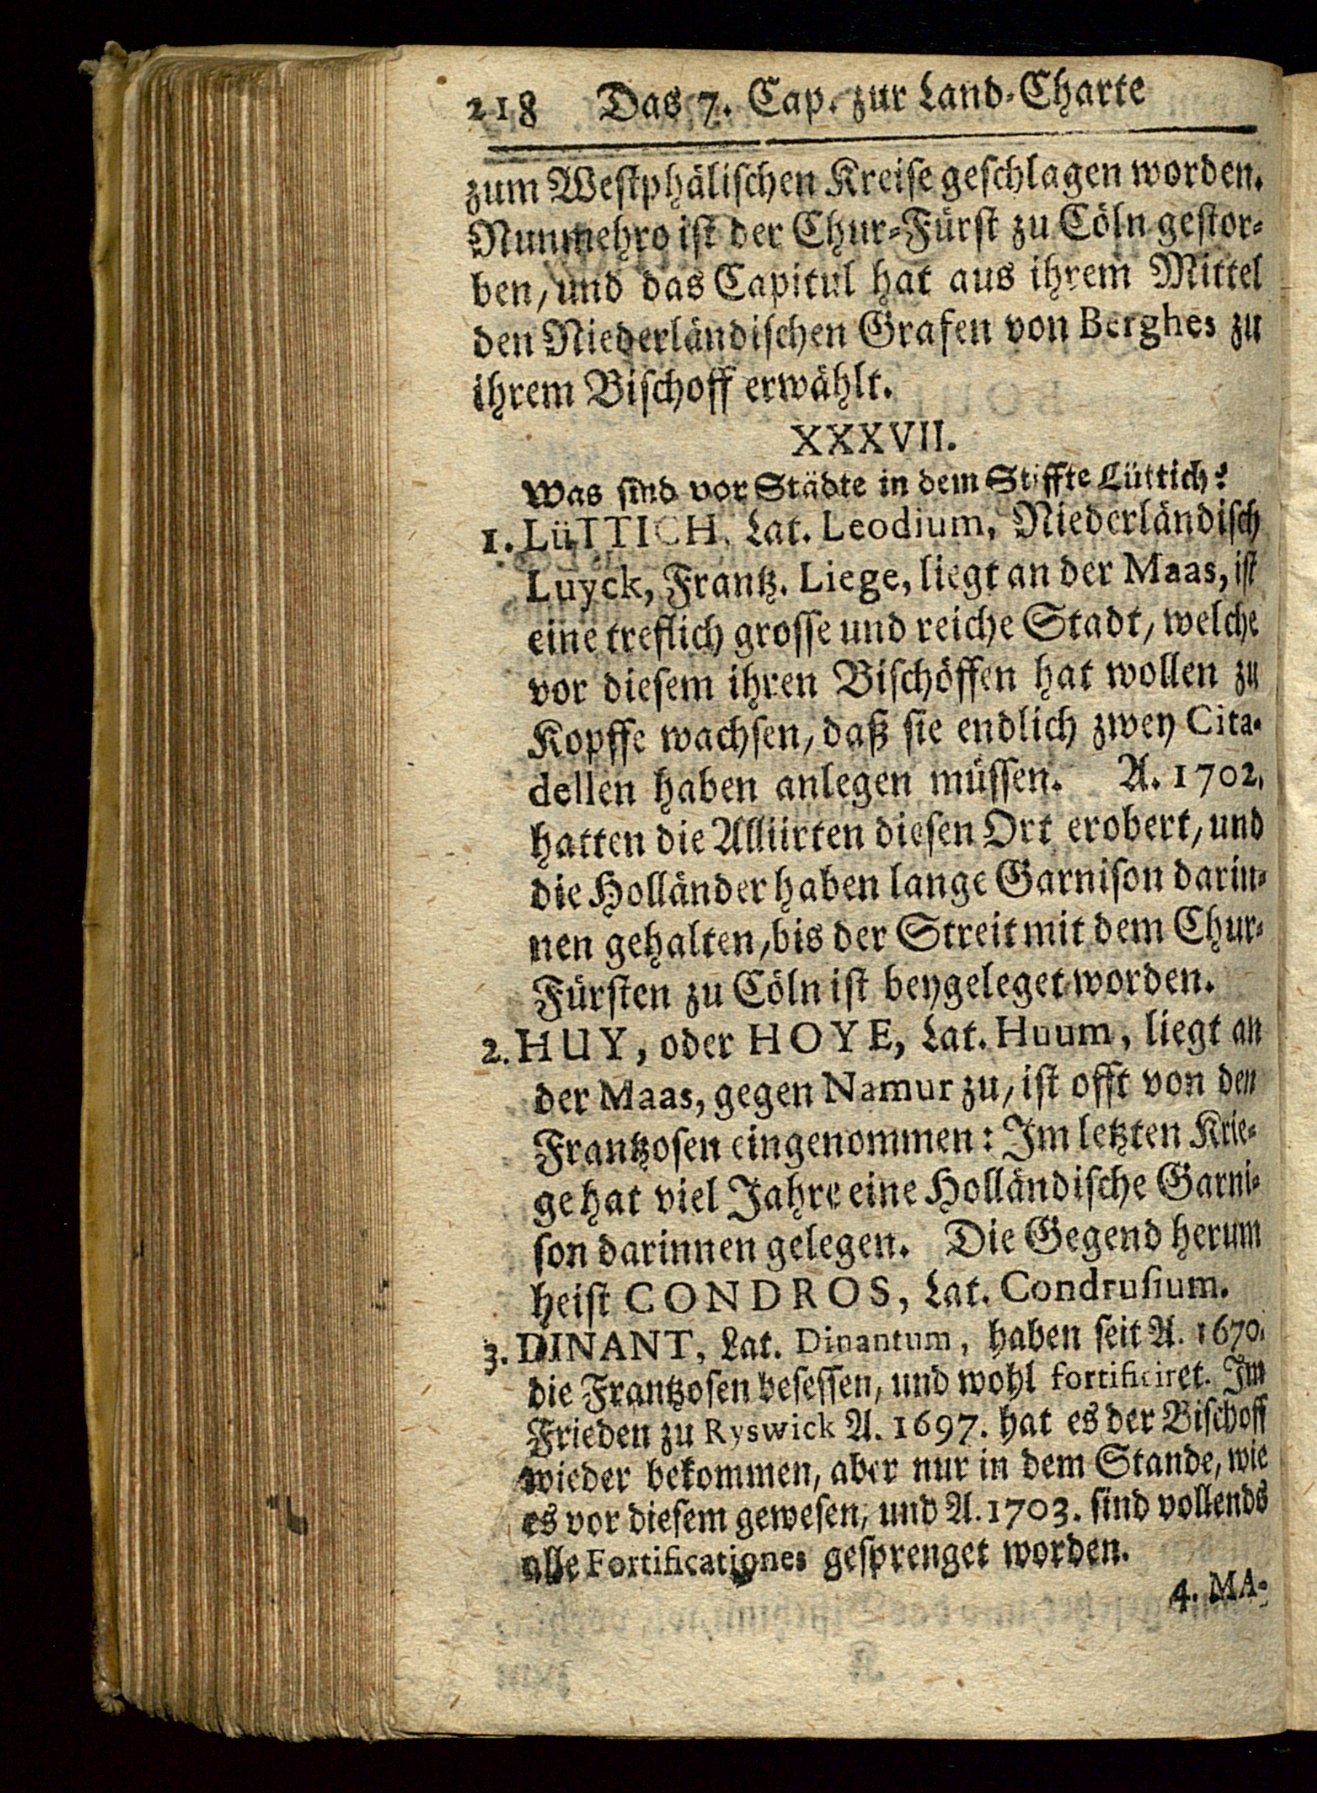 218 Das 7. Cap. zur Land-Charte
zum Westphälischen Kreise geschlagen worden.
Nunmehro ist der Chur-Fürst zu Cöln gestor-
ben, und das Capitul hat aus ihrem Mittel
den Niederländischen Grafen von Berghes zu
ihrem Bischoff erwählt.
XXXVII.
Was sind vor Städte in dem Stiffte Lüttich?
1. LüTTICH, Lat. Leodium, Niederländisch
Luyck, Frantz. Liege, liegt an der Maas, ist
eine treflich grosse und reiche Stadt, welche
vor diesem ihren Bischöffen hat wollen zu
Kopffe wachsen, daß sie endlich zwey Cita-
dellen haben anlegen müssen. A. 1702.
hatten die Alliirten diesen Ort erobert, und
die Holländer haben lange Garnison darin-
nen gehalten, bis der Streit mit dem Chur-
Fürsten zu Cöln ist beygeleget worden.
2. HUY, oder HOYE, Lat. Huum, liegt an
der Maas, gegen Namur zu, ist offt von den
Frantzosen eingenommen: Im letzten Krie-
ge hat viel Jahre eine Holländische Garni-
son darinnen gelegen. Die Gegend herum
heist CONDROS, Lat. Condrusium.
3. DINANT, Lat. Dinantum, haben seit A. 1670.
die Frantzosen besessen, und wohl fortificiret. Im
Frieden zu Ryswick A. 1697. hat es der Bischoff
wieder bekommen, aber nur in dem Stande, wie
es vor diesem gewesen, und A. 1703. sind vollends
alle Fortificationes gesprenget worden.
4. MA-